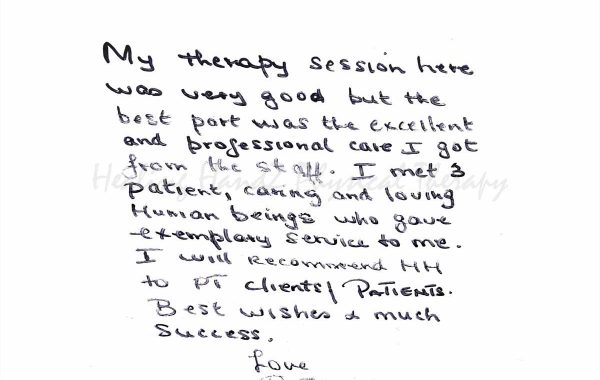 My therapy session here
was very good but the
best part was the excellent
and professional care I got
from the staff. I met 3
patient, caring and loving
Human beings who gave
exemplary service to me.
I will recommend HH
to PT clients/ PATIENTS.
Best wishes & much
success.
Love
Healing Hands Physical Therapy